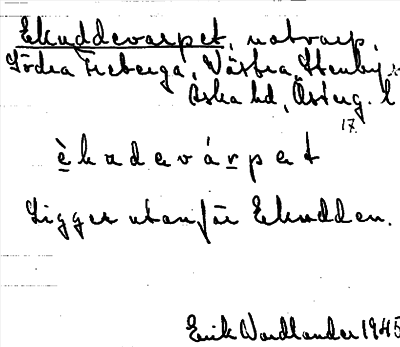 Ekuddevarpet, notvarp,
Södra Freberga, Västra Stenby s:n
Aska hd, Österg. l
17.
èkudevárpet
Ligger utanför Ekudden.
Erik Wadlander 1945